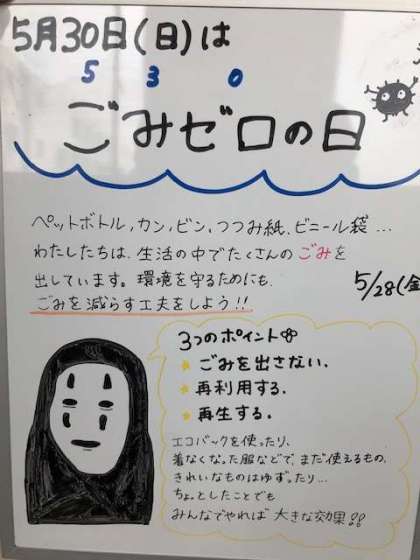 5月30日(日)は
5 3 0
ごみゼロの日
ペットボトル,カン,ビン,つつみ紙、ビニール袋...
わたしたちは、生活の中でたくさんのごみを
出しています。環境を守るためにも、
ごみを減らす工夫をしよう!!
5/28(金
3つのポイント
ごみを出さない、
再利用する、
再生する。
エコバックを使ったり、
着なくなった服などで、まだ使えるもの、
きれいなものはゆずったり...
ちょっとしたことでも
みんなでやれば大きな効果!!